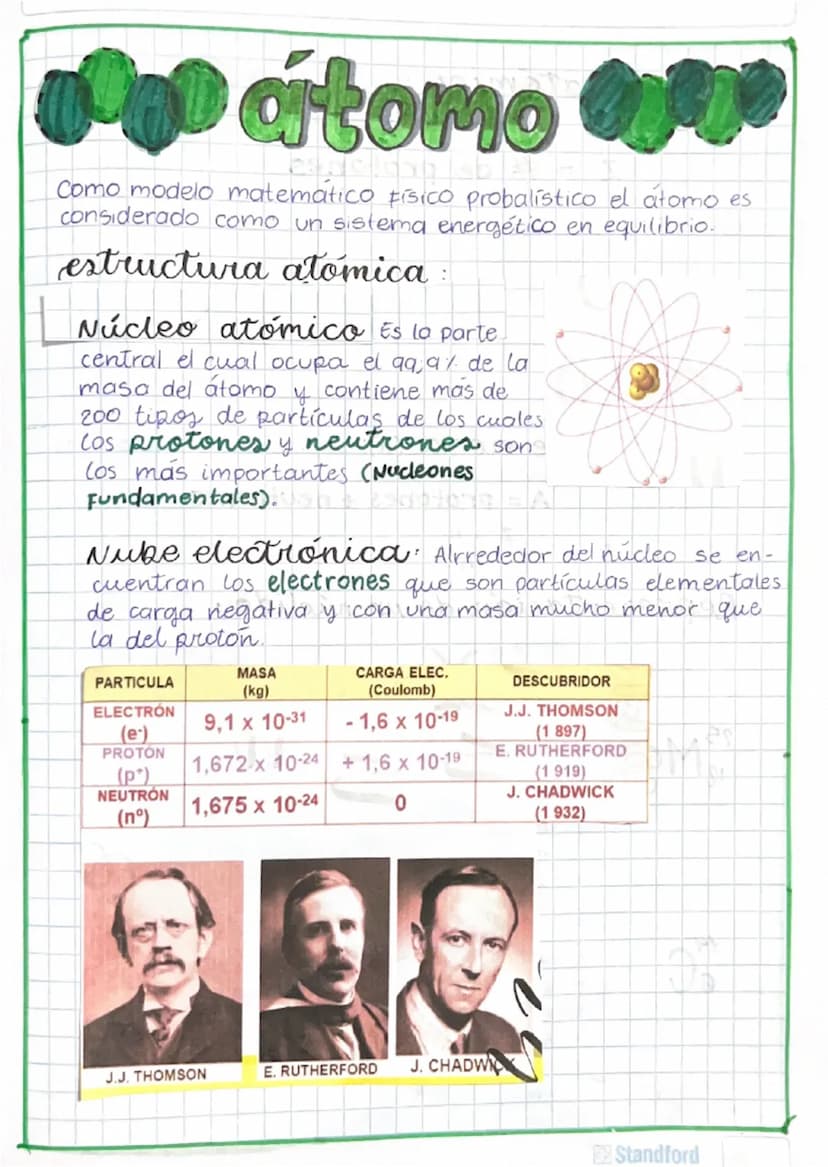 átomo
Como modelo matemático físico probalístico el átomo es
considerado como un sistema energético en equilibrio.
estructura atómica :
Núcleo atómico Es la parte
central el cual ocupa el 99,9% de la
masa del átomo y contiene más de
200 tipos de partículas de los cuales
los protones y neutrones son
los más importantes (Nucleones
Fundamentales).
Nube electrónica: Alrrededor del núcleo se en-
cuentran los electrones que son partículas elementales
de carga negativa y con una masa mucho menor que
la del protón.
PARTICULA MASA (kg) CARGA ELEC. (Coulomb) DESCUBRIDOR
ELECTRÓN (e-) 9,1 x 10-31 - 1,6 x 10-19 J.J. THOMSON (1 897)
PROTÓN (p+) 1,672 x 10-24 + 1,6 x 10-19 E. RUTHERFORD (1 919)
NEUTRÓN (nº) 1,675 x 10-24 0 J. CHADWICK (1 932)
J.J. THOMSON E. RUTHERFORD J. CHADWICK
Standford